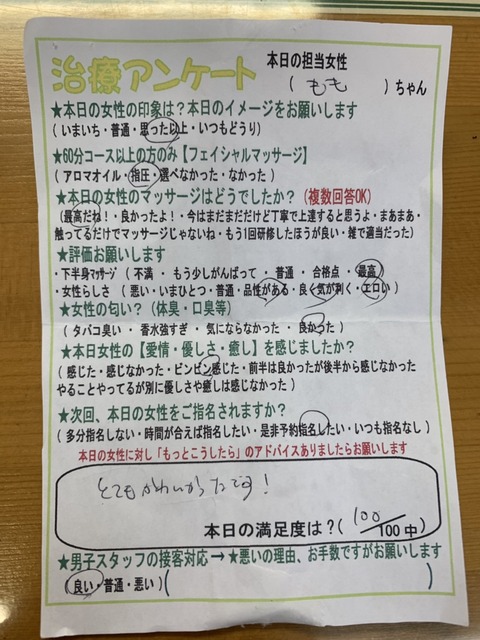 治療アンケート
本日の担当女性
(もも)ちゃん
★本日の女性の印象は?本日のイメージをお願いします
(いまいち・普通・思った以上・いつもどうり)
★60分コース以上の方のみ【フェイシャルマッサージ】
(アロマオイル・指圧・選べなかった・なかった)
★本日の女性のマッサージはどうでしたか?(複数回答OK)
(最高だね!・良かったよ!・今はまだまだだけど丁寧で上達すると思うよ・まあまあ・
触ってるだけでマッサージじゃないね・もう1回研修したほうが良い・雑で適当だった)
★評価お願いします
・下半身マッサージ(不満・もう少しがんばって・普通・合格点・最高)
・女性らしさ(悪い・いまひとつ・普通・品性がある・良く気が利く・エロい)
★女性の匂い?(体臭・口臭等)
(タバコ臭い・香水強すぎ・気にならなかった・良かった)
★本日女性の【愛情・優しさ・癒し】を感じましたか?
(感じた・感じなかった・ビンビン感じた・前半は良かったが後半から感じなかった
やることやってるが別に優しさや癒しは感じなかった)
★次回、本日の女性をご指名されますか?
(多分指名しない・時間が合えば指名したい・是非予約指名したい・いつも指名なし)
本日の女性に対し「もっとこうしたら」のアドバイスありましたらお願いします
とてもかわいかったです!
本日の満足度は?(100/100中)
★男子スタッフの接客対応→★悪いの理由、お手数ですがお願いします
(良い・普通・悪い)( )